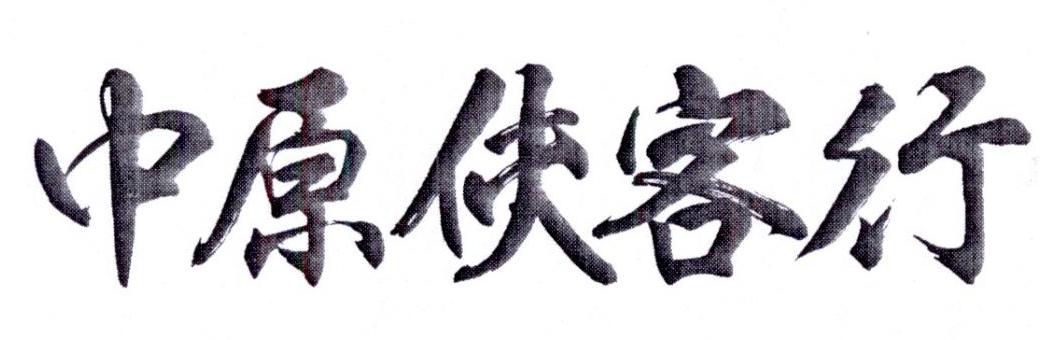 中原侠客行